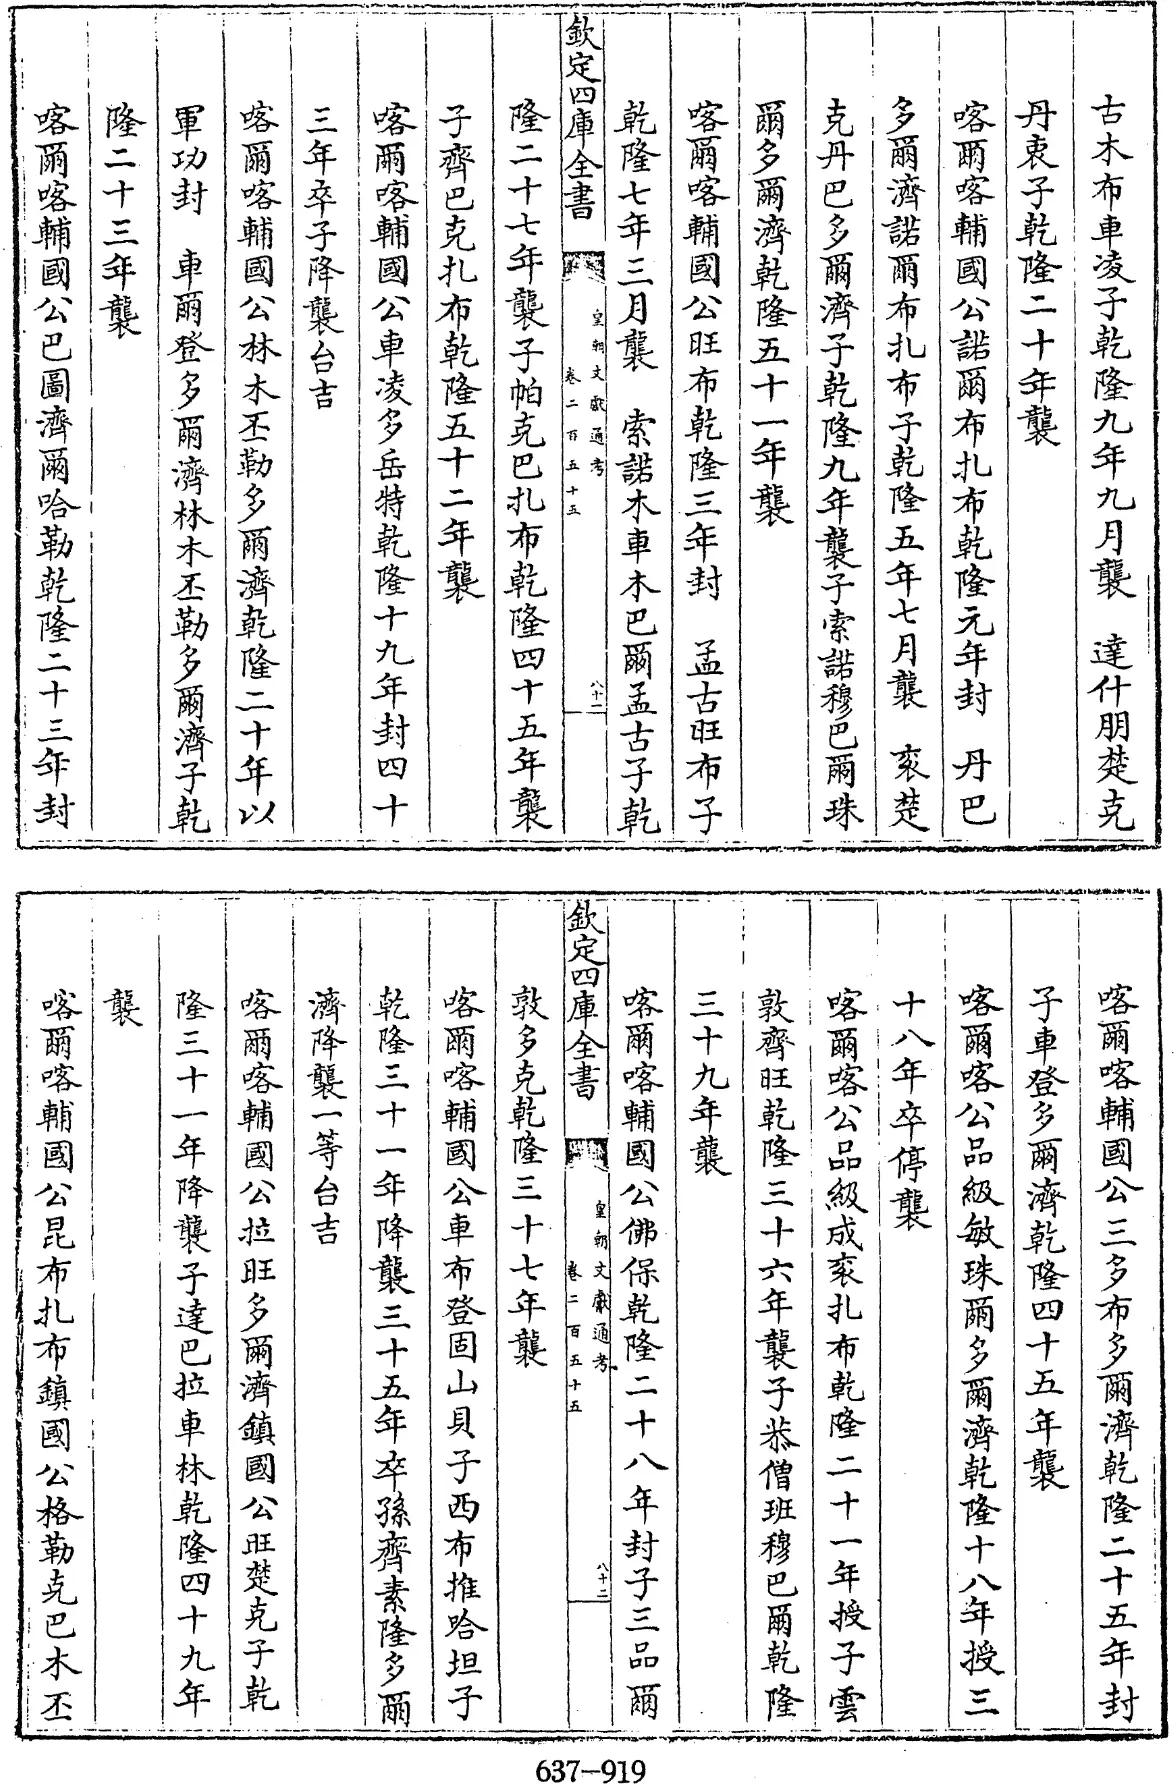 古木布車凌子乾隆九年九月襲　達什朋楚克
丹衷子乾隆二十年襲
喀爾喀輔國公諾爾布扎布乾隆元年封　丹巴
多爾濟諾爾布扎布子乾隆五年七月襲　衮楚
克丹巴多爾濟子乾隆九年襲子索諾穆巴爾珠
爾多爾濟乾隆五十一年襲
喀爾喀輔國公旺布乾隆三年封　孟古旺布子
乾隆七年三月襲　索諾木車木巴爾孟古子乾
欽定四庫全書
皇朝文獻通考
卷二百五十五
八十一
隆二十七年襲子帕克巴扎布乾隆四十五年襲
子齊巴克扎布乾隆五十二年襲
喀爾喀輔國公車凌多岳特乾隆十九年封四十
三年卒子降襲台吉
喀爾喀輔國公林木丕勒多爾濟乾隆二十年以
軍功封　車爾登多爾濟林木丕勒多爾濟子乾
隆二十三年襲
喀爾喀輔國公巴圖濟爾哈勒乾隆二十三年封
喀爾喀輔國公三多布多爾濟乾隆二十五年封
子車登多爾濟乾隆四十五年襲
喀爾喀公品級敏珠爾多爾濟乾隆十八年授三
十八年卒停襲
喀爾喀公品級成衮扎布乾隆二十一年授子雲
敦齊旺乾隆三十六年襲子恭僧班穆巴爾乾隆
三十九年襲
喀爾喀輔國公佛保乾隆二十八年封子三品爾
欽定四庫全書
皇朝文獻通考
卷二百五十五
八十二
敦多克乾隆三十七年襲
喀爾喀輔國公車布登固山貝子西布推哈坦子
乾隆三十一年降襲三十五年卒孫齊素隆多爾
濟降襲一等台吉
喀爾喀輔國公拉旺多爾濟鎮國公旺楚克子乾
隆三十一年降襲子達巴拉車林乾隆四十九年
襲
喀爾喀輔國公昆布扎布鎮國公格勒克巴木丕
637-919